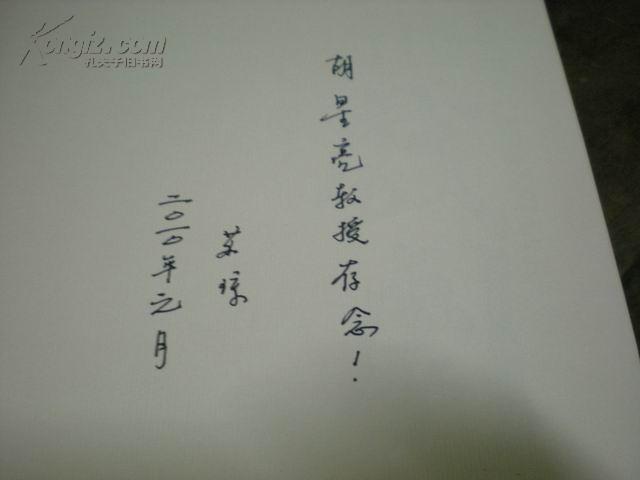 胡星亮教授存念！
苏琼
二〇一〇年元月
Kongfz.com
孔夫子旧书网